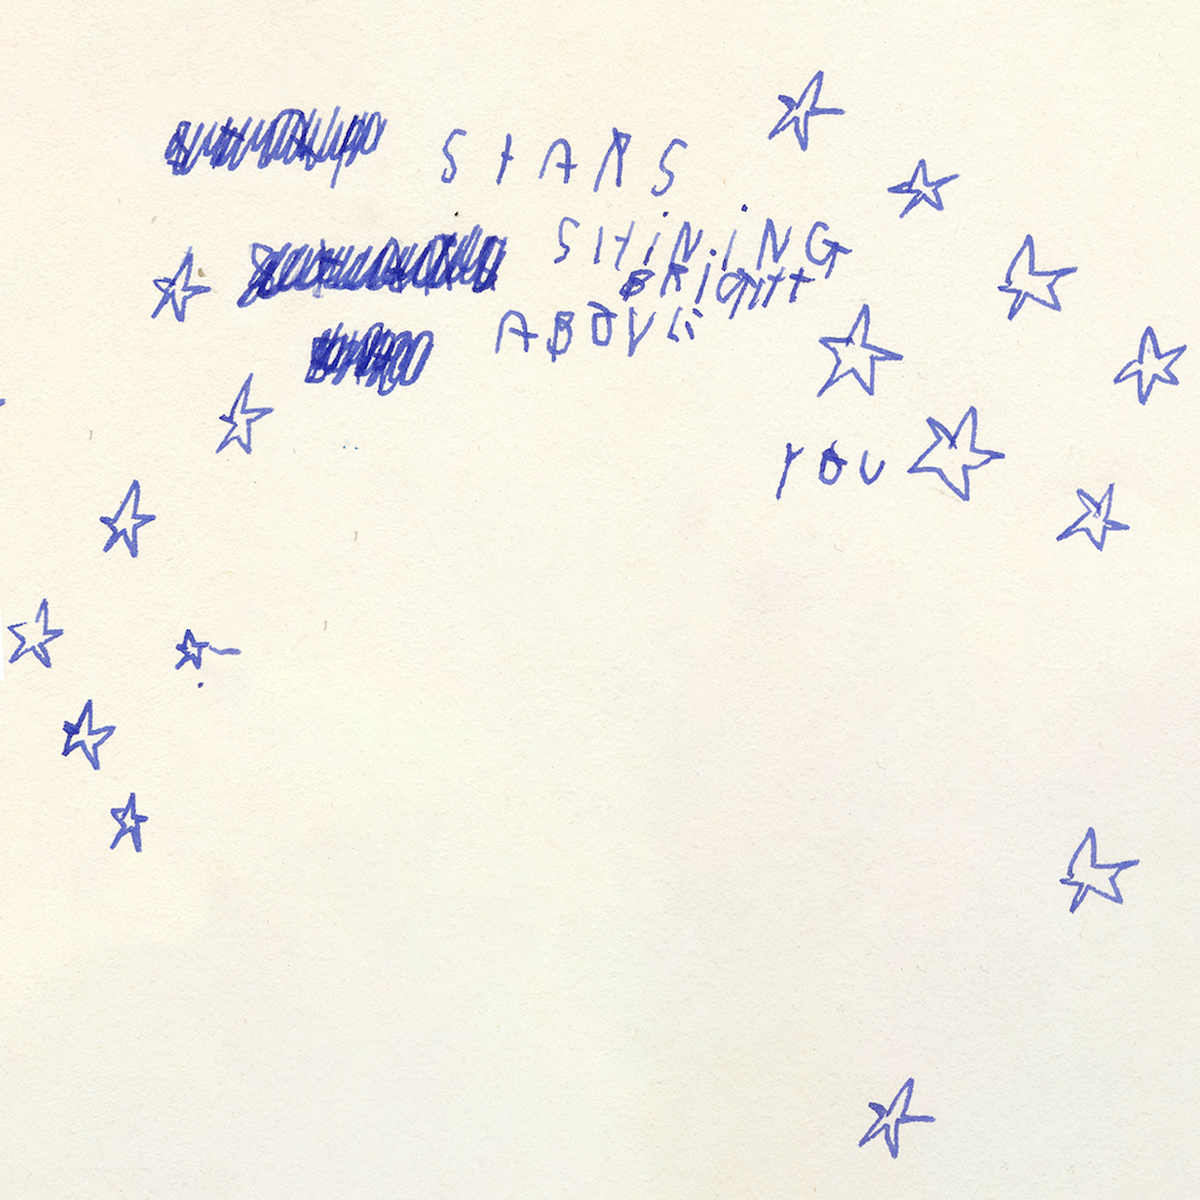 STARS
SHiNiNG
BRiGHt
ABOVE
YOU